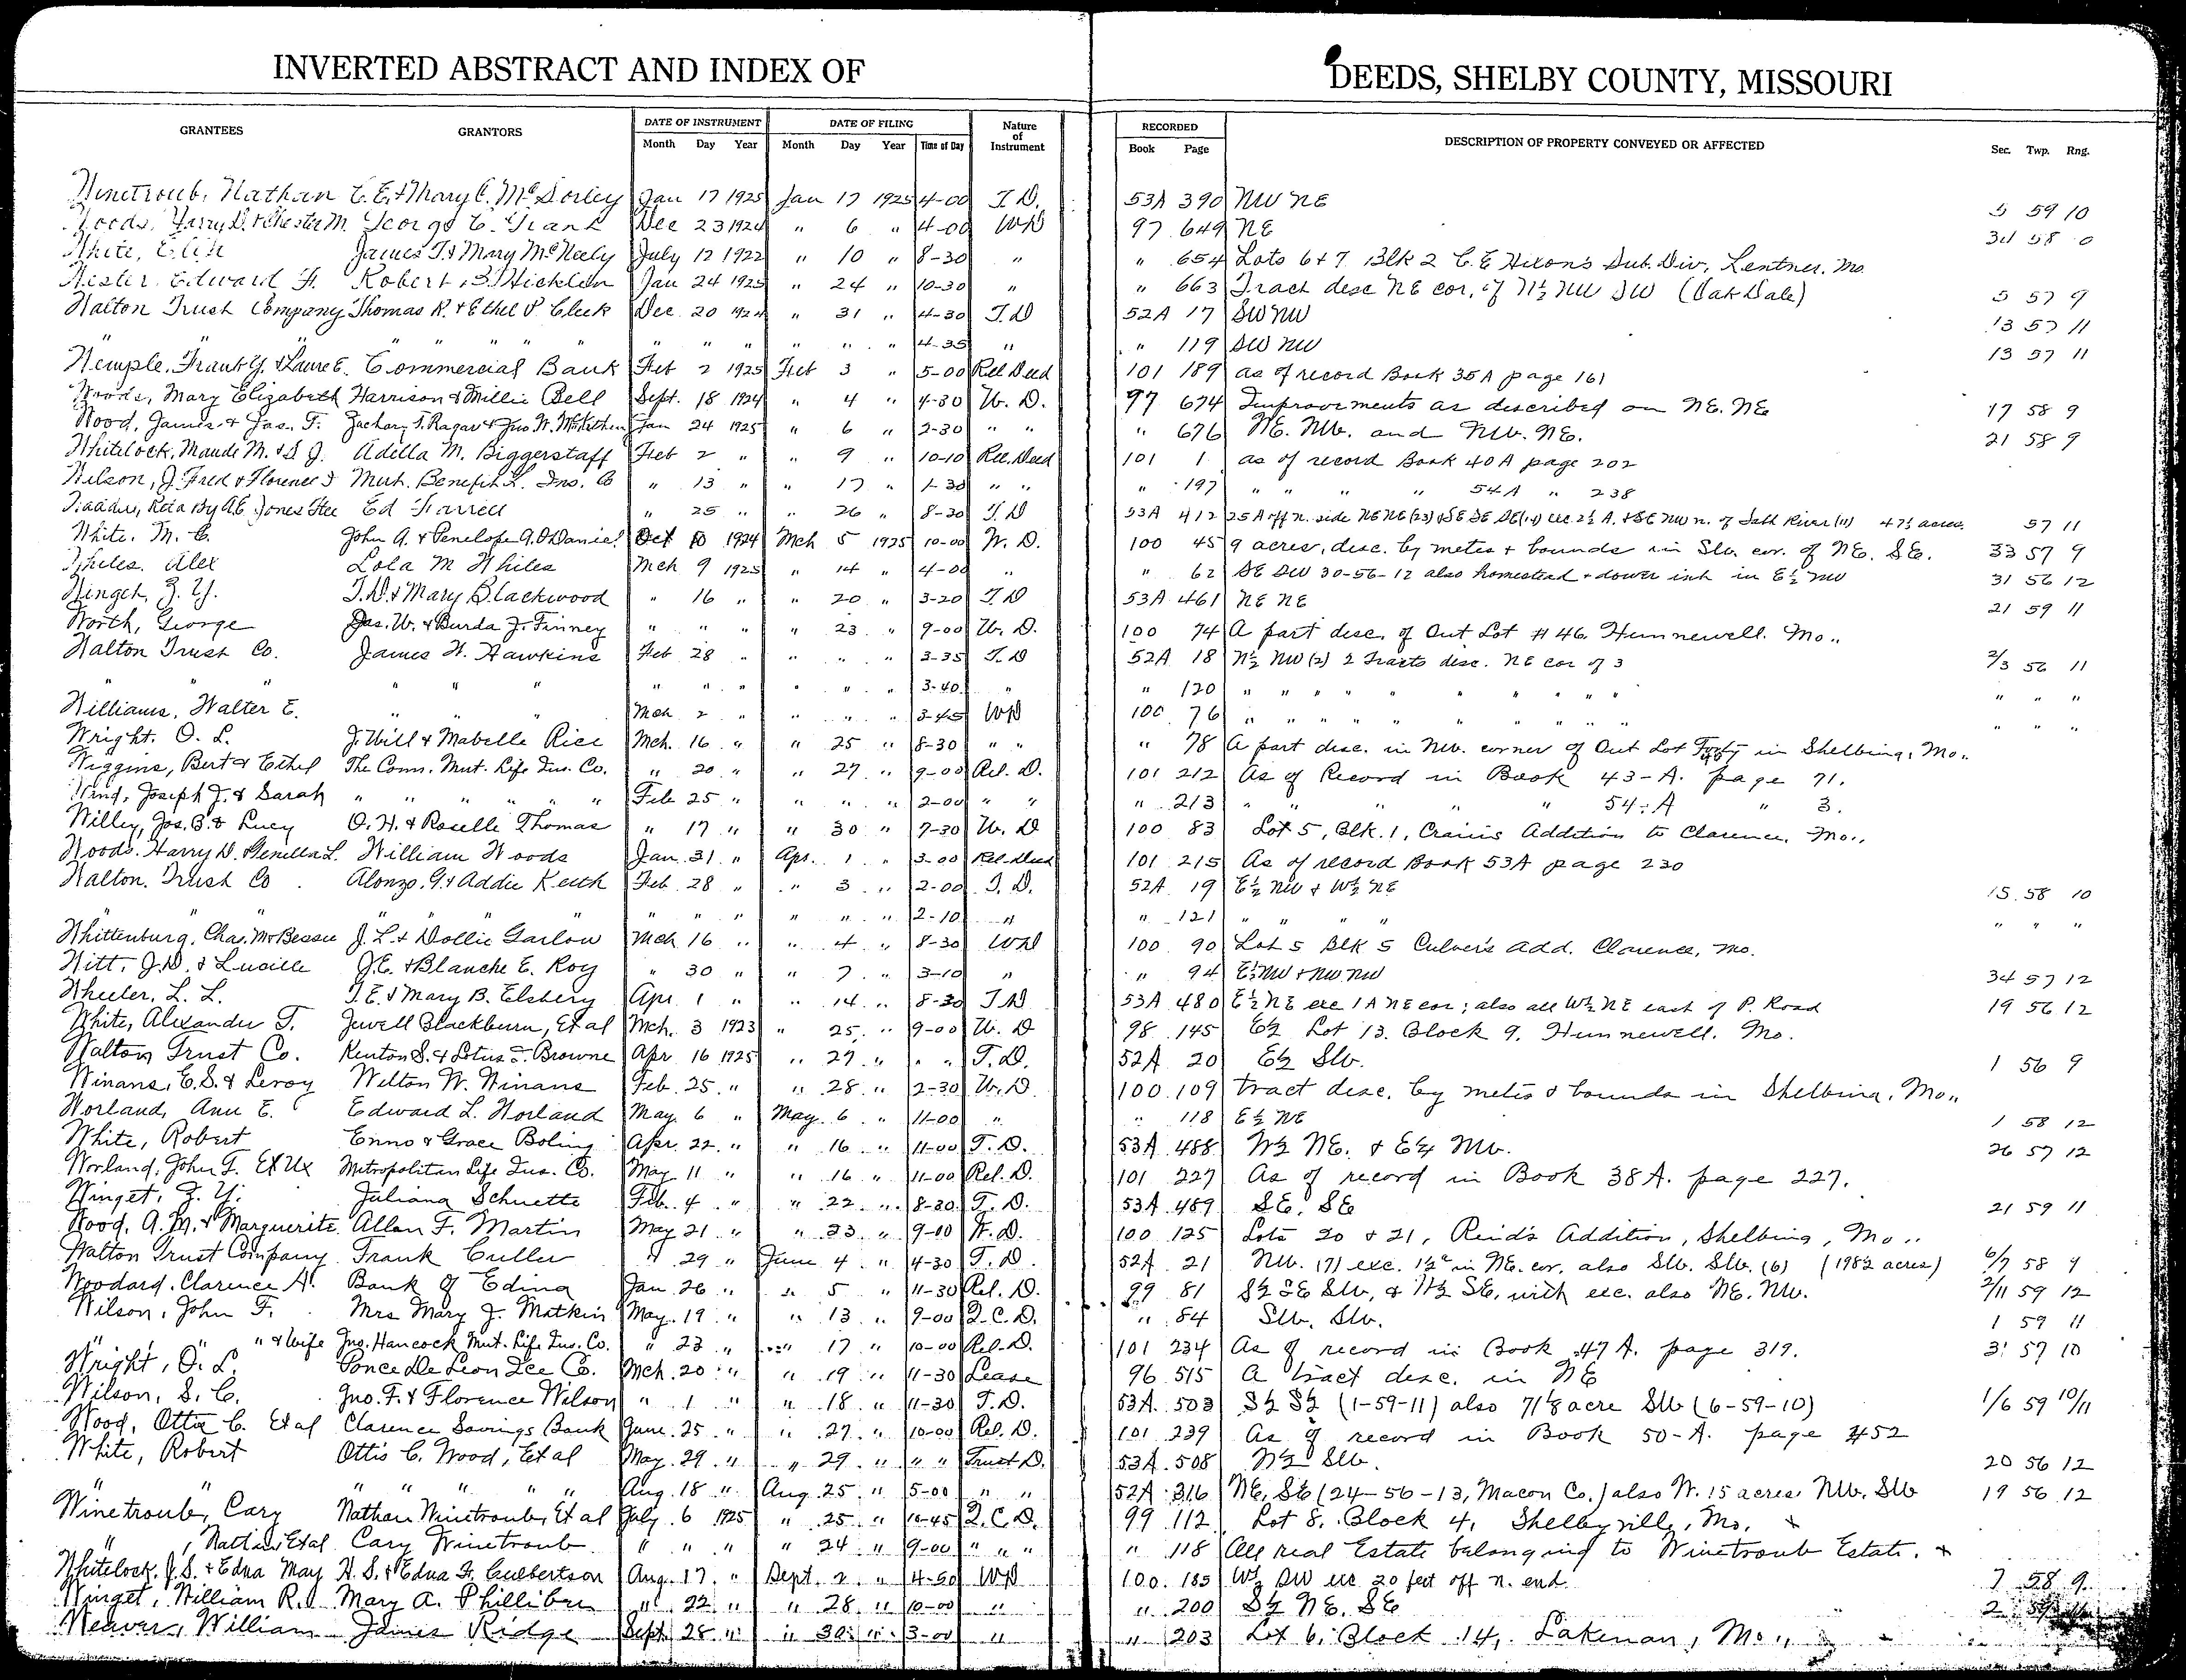 INVERTED ABSTRACT AND INDEX OF DEEDS, SHELBY COUNTY, MISSOURI
GRANTEES GRANTORS DATE OF INSTRUMENT DATE OF FILING Nature of Instrument RECORDED DESCRIPTION OF PROPERTY CONVEYED OR AFFECTED Sec. Twp. Rng.
Month Day Year Month Day Year Time of Day Book Page
Winetroub, Nathan C. E. & Mary C. McSorley Jan 17 1925 Jan 17 1925 4-00 T. D. 53A 390 NW NE 5 59 10
Woods, Harry D. & Chester M. George C. Grant Dec 23 1924 " 6 " 4-00 WD 97 649 NE 58
White, James T. & Mary McNeely July 12 1922 " 10 " 8-30 " " 654 Lots 6 & 7 Blk 2 C. E. Hixon's Sub. Div, Lentner, Mo
Edward F. Robert S. Hicklin Jan 24 1925 " 24 " 10-30 " " 663 Tract desc NE cor. of N½ NW SW (Oak Dale) 5 57 9
Walton Trust Company Thomas R. & Ethel P. Cleek Dec 20 1924 " 31 " 4-30 T. D 52A 17 SW NW 13 57 11
" " " " " " " " " " 4-35 " " 119 SW NW 13 57 11
Wemple, Frank Y. & Laura E. Commercial Bank Feb 2 1925 Feb 3 " 5-00 Rel Deed 101 189 as of record Book 35A page 161
Woods, Mary Elizabeth Harrison & Millie Bell Sept. 18 1924 " 4 " 4-30 W. D. 97 674 Improvements as described on NE. NE 17 58 9
Wood, James & Jas. F. Zachary T. Ragar & Jno W. Jan 24 1925 " 6 " 2-30 " " " 676 NE. NW. and NW. NE. 21 58 9
Whitelock, Maude M. & S J. Adella M. Biggerstaff Feb 2 " " 9 " 10-10 Rel. Deed 101 1 as of record Book 40A page 202
Wilson, J. Fred & Florence I Mut. Benefit L. Ins. Co " 13 " " 17 " 1-30 " " " 197 " " " " 54A " 238
By A.E. Jones Ed Farrell " 25 " " 26 " 8-30 T. D 53A 412 25A off n. side NE NE (23) & SE SE SE (14) exc. 2½ A. & SE NW n. of Salt River (11) 47½ acres. 57 11
White, M. C. John A. & Penelope A. O'Daniel Oct 10 1924 Mch 5 1925 10-00 W. D. 100 45 9 acres, desc. by metes & bounds in SW. cor. of NE. SE. 33 57 9
Whiles, Alex Lola M Whiles Mch 9 1925 " 14 " 4-00 " " 62 SE SW 30-56-12 also homestead & dower int in E½ NW 31 56 12
Winget, Z. Y. T. D. & Mary Blackwood " 16 " " 20 " 3-20 T. D 53A 461 NE NE 21 59 11
Worth, George Jas. W. & Burda J. Finney " " " " 23 " 9-00 W. D. 100 74 A part desc. of Out Lot #46. Hunnewell. Mo..
Walton Trust Co. James W. Hawkins Feb 28 " " " " 3-35 T. D 52A 18 N½ NW (2) 2 Tracts desc. NE cor of 3 2/3 56 11
" " " " " " " " " " " " 3-40 " " 120 " " " " " " " " " " "
Williams, Walter E. " " " Mch 2 " " " " 3-45 WD 100 76 " " " " " " " " " " "
Wright, O. L. J. Will & Mabelle Rice Mch. 16 " " 25 " 8-30 " " " 78 A part desc. in NW. corner of Out Lot Forty in Shelbina, Mo..
Wiggins, Bert & Ethel The Conn. Mut. Life Ins. Co. " 20 " " 27 " 9-00 Rel. D. 101 212 As of Record in Book 43-A. page 71.
Wind, Joseph J. & Sarah " " " " " " Feb 25 " " " " 2-00 " " " 213 " " " " 54-A " 3.
Willey, Jos. B. & Lucy O. H. & Roselle Thomas " 17 " " 30 " 7-30 W. D 100 83 Lot 5, Blk. 1, Crain's Addition to Clarence, Mo..
Woods, Harry D. & Genella L. William Woods Jan. 31 " Apr. 1 " 3-00 Rel. Deed 101 215 As of record Book 53A page 230
Walton Trust Co Alonzo. G. & Addie Keith Feb. 28 " " 3 " 2-00 T. D. 52A 19 E½ NW & W½ NE 15 58 10
" " " " " " " " " " 2-10 " " 121 " " " " " " "
Whittenburg, Chas. M & Bessie J. L. & Dollie Garlow Mch 16 " " 4 " 8-30 WD 100 90 Lot 5 Blk 5 Culver's add. Clarence, Mo.
Witt, J. D. & Lucille J. E. & Blanche E. Roy " 30 " " 7 " 3-10 " " 94 E½ NW & NW NW 34 57 12
Wheeler, L. L. T. E. & Mary B. Elsbery Apr 1 " " 14 " 8-30 T. D 53A 480 E½ NE exc 1 A NE cor; also all W½ NE east of P. Road 19 56 12
White, Alexander T. Jewell Blackburn, Et al Mch. 3 1923 " 25 " 9-00 W. D 98 145 E½ Lot 13. Block 9. Hunnewell. Mo.
Walton Trust Co. Kenton S. & Lotus Browne Apr 16 1925 " 27 " " " T. D. 52A 20 E½ SW. 1 56 9
Winans, E. S. & Leroy Welton W. Winans Feb. 25 " " 28 " 2-30 W. D 100 109 tract desc. by metes & bounds in Shelbina, Mo..
Worland, Ann E. Edward L. Worland May. 6 " May. 6 " 11-00 " " 118 E½ NE 1 58 12
White, Robert Enno & Grace Boling Apr. 22 " " 16 " 11-00 T. D. 53A 488 W½ NE. & E½ NW. 26 57 12
Worland, John T. Et Ux Metropolitan Life Ins. Co. May 11 " " 16 " 11-00 Rel. D. 101 227 As of record in Book 38A. page 227.
Winget, Z. Y. Juliana Schuette Feb. 4 " " 22 " 8-30 T. D. 53A 489 SE. SE 21 59 11
Wood, A. M. & Marguerite Allan F. Martin May 21 " " 23 " 9-00 W. D. 100 125 Lots 20 & 21, Reid's Addition, Shelbina, Mo..
Walton Trust Company Frank Culler " 29 " June 4 " 4-30 T. D. 52A 21 NW. (7) exc. 1½ᵃ in NE. cor. also SW. SW. (6) (198½ acres) 6/7 58 9
Woodard, Clarence A. Bank of Edina Jan 26 " " 5 " 11-30 Rel. D. 99 81 S½ SE SW, & W½ SE, with exc. also NE. NW. 2/11 59 12
Wilson, John F. Mrs Mary J. Matkin May. 19 " " 13 " 9-00 Q. C. D. " 84 SW. SW. 1 59 11
" " " & Wife Jno. Hancock Mut. Life Ins. Co. " 23 " " 17 " 10-00 Rel. D. 101 234 As of record in Book 47 A. page 319. 3 57 10
Wright, O. L. Ponce De Leon Ice Co. Mch. 20 " " 19 " 11-30 Lease 96 515 A tract desc. in NE
Wilson, S. C. Jno. F. & Florence Wilson " 1 " " 18 " 11-30 T. D. 53A. 503 S½ S½ (1-59-11) also 71⅛ acre SW (6-59-10) 1/6 59 10/11
Wood, Ottis C. Et al Clarence Savings Bank June 25 " " 27 " 10-00 Rel. D. 101 239 As of record in Book 50-A. page 452
White, Robert Ottis C. Wood, Et al May. 29 " " 29 " " " Trust D. 53A. 508 W½ SW. 20 56 12
" " " " " " " Aug. 18 " Aug. 25 " 5-00 " " 52A 316 NE. SE (24-56-13, Macon Co.) also W. 15 acres NW. SW 19 56 12
Winetroub, Cary Nathan Winetroub, Et al July 6 1925 " 25 " 10-45 Q. C. D. 99 112 Lot 8. Block 4, Shelbyville, Mo. x
" , Nathan Et al Cary Winetroub " " " " 24 " 9-00 " " " " 118 All real Estate belonging to Winetroub Estate. x
Whitelock, J. S. & Edna May H. S. & Edna F. Culbertson Aug. 17 " Sept. 2 " 4-50 WD 100 185 W½ SW exc 20 feet off n. end 7 58 9
Winget, William R. Mary A. Philliber " 22 " " 28 " 10-00 " " 200 S½ NE. SE 2
Weaver, William James Ridge Sept. 28 " " 30 " 3-00 " " 203 Lot 6, Block 14, Lakenan, Mo..